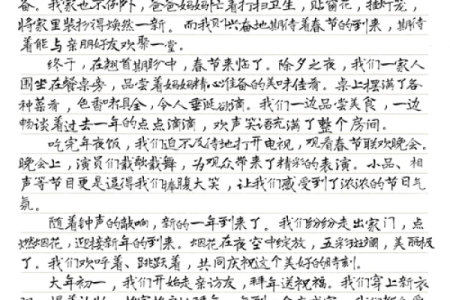 备。我家也不例外，爸爸妈妈忙着打扫卫生，贴窗花，挂灯笼，
将家里装扮得焕然一新。而我则兴奋地期待着春节的到来，期待
着能与亲朋好友欢聚一堂。
终于，在翘首期盼中，春节来临了。除夕之夜，我们一家人
围坐在餐桌旁，品尝着妈妈精心准备的美味佳肴。桌上摆满了各
种菜肴，色香味具全，令人垂涎欲滴。我们一边品尝美食，一边
畅谈着过去一年的点点滴滴，欢声笑语充满了整个房间。
吃完年夜饭，我们迫不及待地打开电视，观看春节联欢晚会。
晚会上，演员们载歌载舞，为观众带来了精彩的表演。小品、相
声等节目更是逗得我们捧腹大笑，让我们感受到了浓浓的节日气
氛。
随着钟声的敲响，新的一年到来了。我们纷纷走出家门，点
燃烟花，迎接新年的到来。烟花在夜空中绽放，五彩斑斓，美丽极
了。我们欢呼着、跳跃着，共同庆祝这个美好的时刻。
大年初一，我们开始走亲访友，拜年送祝福。我们穿上新衣